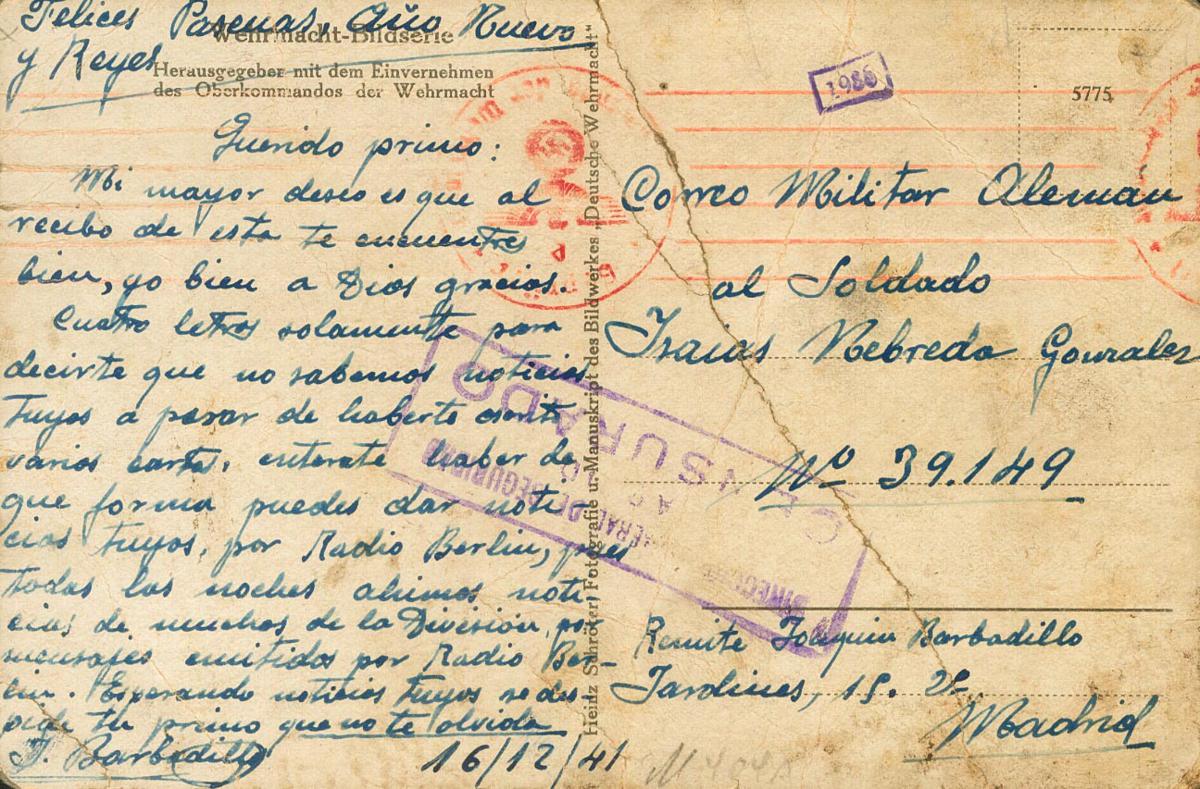 Felices Pascuas, Año Nuevo
y Reyes
Wehrmacht-Bildserie
Herausgegeber mit dem Einvernehmen
des Oberkommandos der Wehrmacht
Querido primo:
Mi mayor deseo es que al
recibo de esta te encuentres
bien, yo bien a Dios gracias.
Cuatro letras solamente para
decirte que no sabemos noticias
tuyas a pesar de haberte escrito
varias cartas, enterate haber de
que forma puedes dar noti-
cias tuyas, por Radio Berlin, pues
todas las noches ahimos noti
cias de muchos de la División, por
mensajes emitidos por Radio Ber-
lin. Esperando noticias tuyas se des-
pide tu primo que no te olvida
J. Barbadillo
16/12/41
Heinz Schröter, Fotografie u. Manuskript des Bildwerkes „Deutsche Wehrmacht"
1986
5775
Correo Militar Aleman
al Soldado
Isaias Nebreda Gonzalez
Nº 39.149
Remite Joaquin Barbadillo
Jardines, 15. 2º
Madrid
CENSURADO
DE SEGURIDAD